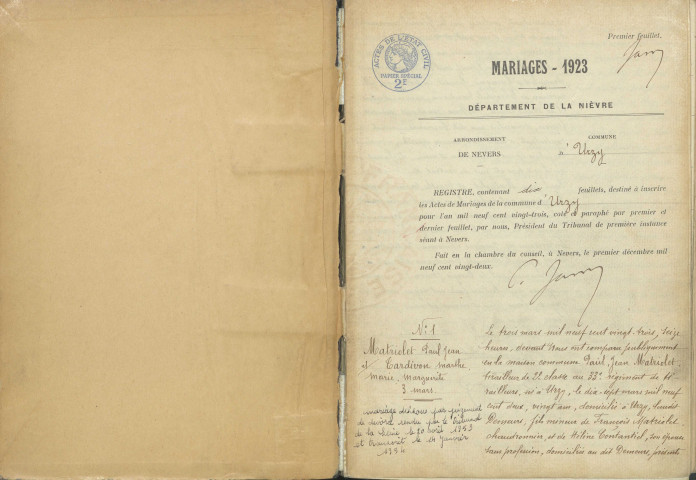 Premier feuillet.
ACTES DE L'ÉTAT CIVIL
PAPIER SPÉCIAL
2F
MARIAGES - 1923
DÉPARTEMENT DE LA NIÈVRE
ARRONDISSEMENT
DE NEVERS
COMMUNE
d'Urzy
REGISTRE, contenant dix feuillets, destiné à inscrire
les Actes de Mariages de la commune d'Urzy
pour l'an mil neuf cent vingt-trois, coté et paraphé par premier et
dernier feuillet, par nous, Président du Tribunal de première instance
séant à Nevers.
Fait en la chambre du conseil, à Nevers, le premier décembre mil
neuf cent vingt-deux.
N° 1
Matriolet Paul Jean
et Cardivon marthe
marie, marguerite
3 mars.
mariage dissous par jugement
de divorce rendu par le Tribunal
de le 20 août 1953
et le 14 janvier
1954
Le trois mars mil neuf cent vingt trois, seize
heures, devant Nous ont comparu publiquement
en la maison commune Paul, Jean Matriolet,
tirailleur de 2e classe au 33e régiment de ti-
railleurs, né à Urzy, le dix-sept mars mil neuf
cent deux, vingt ans, domicilié à Urzy, lieudit
Demeurs, fils mineur de François Matriolet,
chaudronnier, et de Hélène Contantiel, son épouse
sans profession, domiciliés au dit Demeurs, présents